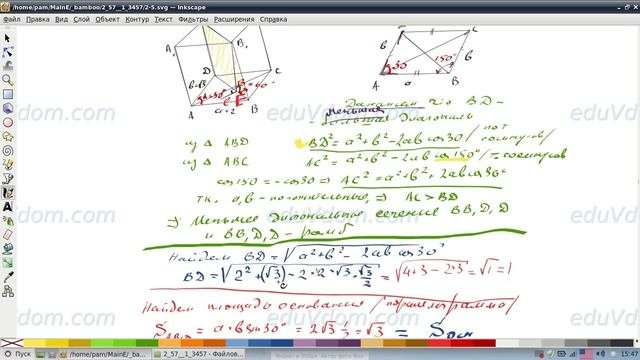 /home/pam/MainE/_bamboo/2_57__1_3457/2-5.svg — Inkscape
Файл Правка Вид Слой Объект Контур Текст Фильтры Расширения Справка
A₁ B₁
D C
b=√3
30°
A a=2 B
30° 150°
b b
A a B
eduVdom.com eduVdom.com
Докажем что BD -
меньшая диагональ
из Δ ABD BD² = a²+b²-2ab cos30°/по т косинусов/
из Δ ABC AC² = a²+b²-2ab cos150°/т. косинусов
cos150 = -cos30 ⇒ AC² = a²+b²+2ab cos30°
т.к. a,b - положительные, ⇒ AC > BD
⇒ Меньшее диагональное сечение BB₁D₁D
и BB₁D₁D - ромб
Найдем BD = √a²+b²-2ab cos30°
BD = √2²+(√3)²-2·2·√3·√3/2 = √4+3-2·3 = √1 = 1
Найдем площадь основания /параллелограмма/
= a·b sin30° = 2√3·½ = √3 = Sосн
eduVdom.com eduVdom.com
Пуск /home/pam/MainE/_bam... 2_57__1_3457 - Файлов... 15:47